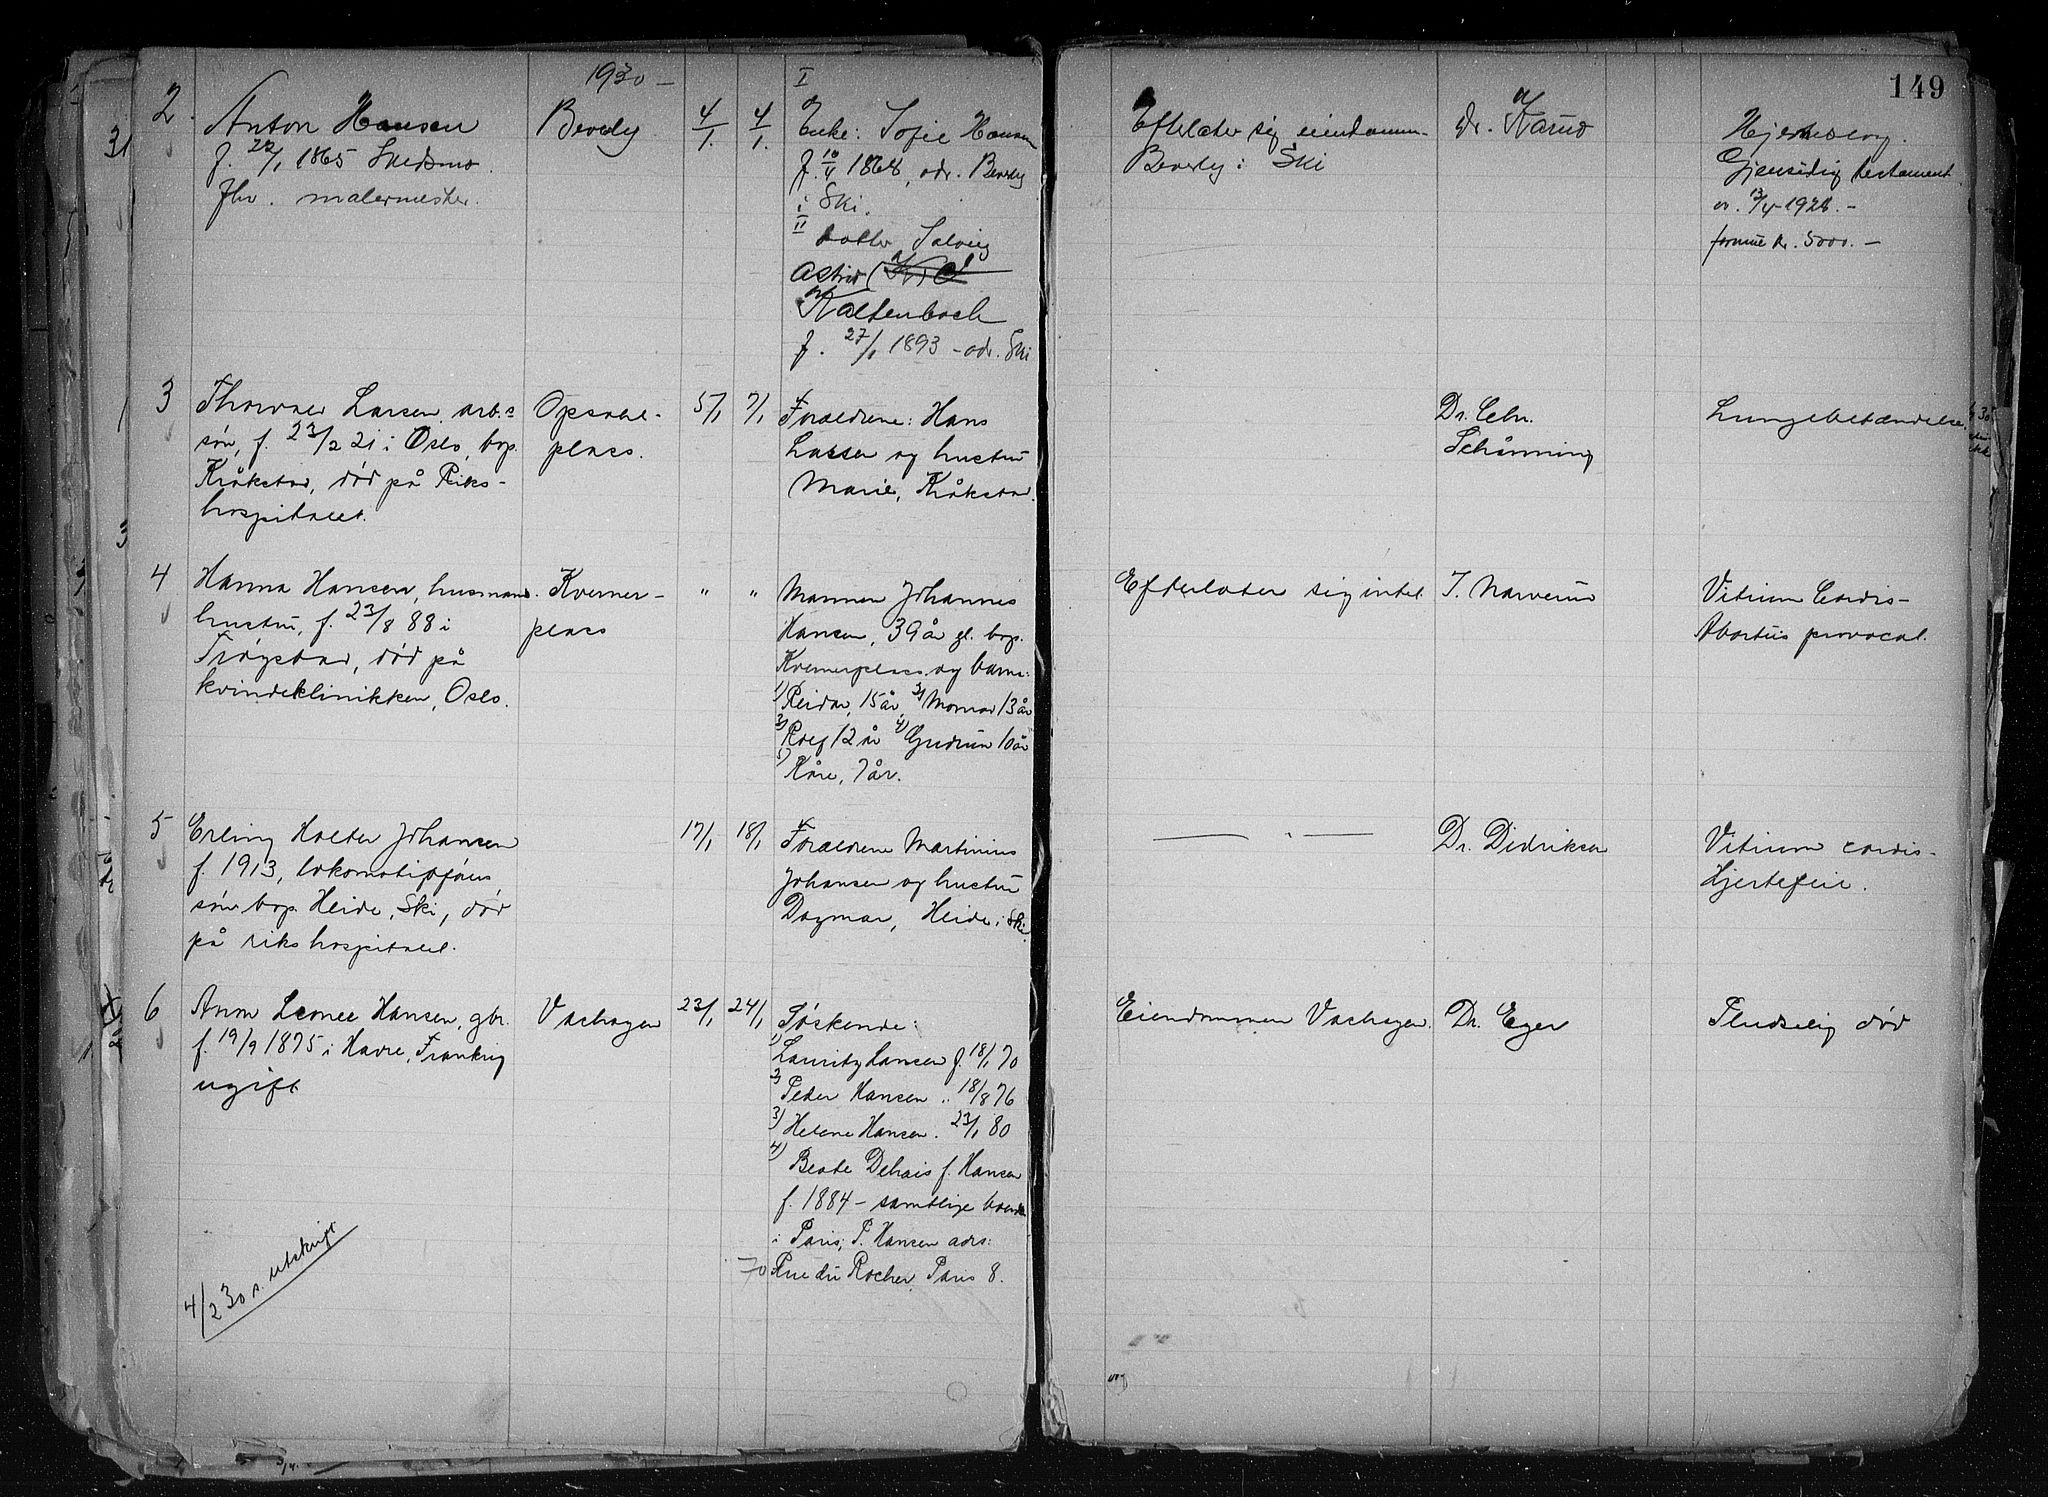 149
1930 –
2
Anton Hansen
f. 22/1 1865 Skedsmo
fhv. malermester.
Beverly
4/1.
4/1.
I
Enke: Sofie Hansen
f. 1868, adr. Beverly
i Ski.
II
datter Solveig
Astrid
Kaltenbach
f. 27/1 1893 – adr. Ski
Efterlater sig eiendommen
Beverly i Ski
dr. Karud
Gjensidig testament
av. 13/4 - 1928. –
formue kr. 5000. –
3
Thorvald Larsen, arb.s
søn, f. 23/2 21 i Oslo, bop.
Kråkstad, død på Riks-
hospitalet.
Opsahl-
plass.
5/1
7/1
Forældrene: Hans
Larsen og hustru
Marie, Kråkstad.
Dr. Chr.
Schønning
Lungebetændelse.
4
Hanna Hansen, husmands-
hustru, f. 23/8 88 i
Trøgstad, død på
kvindeklinikken, Oslo.
Kverner-
plass
"
"
Mannen Johannes
Hansen, 39 år gl. bop.
Kvernerplass og barna:
1) Reidar, 15 år, 2) 13 år
3) Rolf 12 år 4) Gudrun 10 år
5) Kåre, 7 år.
Efterlater sig intet
J. Narverud
Vitium Cordis –
Abortus provocat.
5
Erling Holter Johansen
f. 1913, lokomotivførers
søn bop. Heide, Ski, død
på rikshospitalet.
17/1
18/1
Forældrene Martinius
Johansen og hustru
Dagmar, Heide i Ski.
— " —
Dr. Didriksen
Vitium cordis –
Hjertefeil.
6
Anon Leonel Hansen, gbr.
f. 19/9 1875 i Havre, Frankrig
ugift
23/1
24/1
Søskende:
1) Lauritz Hansen f. 18/1 70
2) Peder Hansen " 18/8 76
3) Helene Hansen. 23/1 80
4) Beate Dehais f. Hansen
f. 1884 – samtlige boende
i Paris; P. Hansen adrs:
70 Rue du Rocher, Paris 8.
Eiendommen
Dr. Eger
Pludselig død
4/2 30 s. utskrift